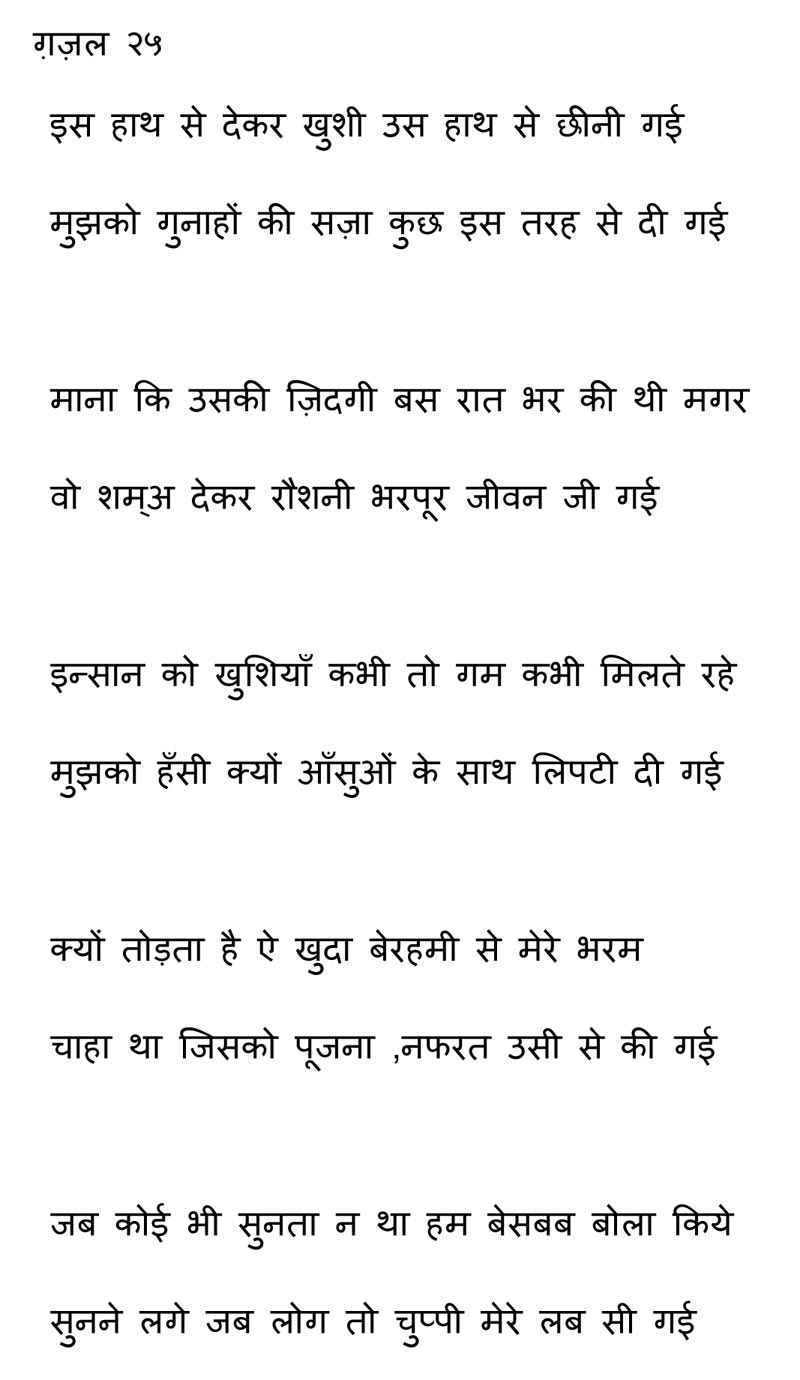 ग़ज़ल २५
इस हाथ से देकर खुशी उस हाथ से छीनी गई
मुझको गुनाहों की सज़ा कुछ इस तरह से दी गई
माना कि उसकी ज़िदगी बस रात भर की थी मगर
वो शम्‌अ देकर रौशनी भरपूर जीवन जी गई
इन्सान को खुशियाँ कभी तो गम कभी मिलते रहे
मुझको हँसी क्यों आँसुओं के साथ लिपटी दी गई
क्यों तोड़ता है ऐ खुदा बेरहमी से मेरे भरम
चाहा था जिसको पूजना ,नफरत उसी से की गई
जब कोई भी सुनता न था हम बेसबब बोला किये
सुनने लगे जब लोग तो चुप्पी मेरे लब सी गई